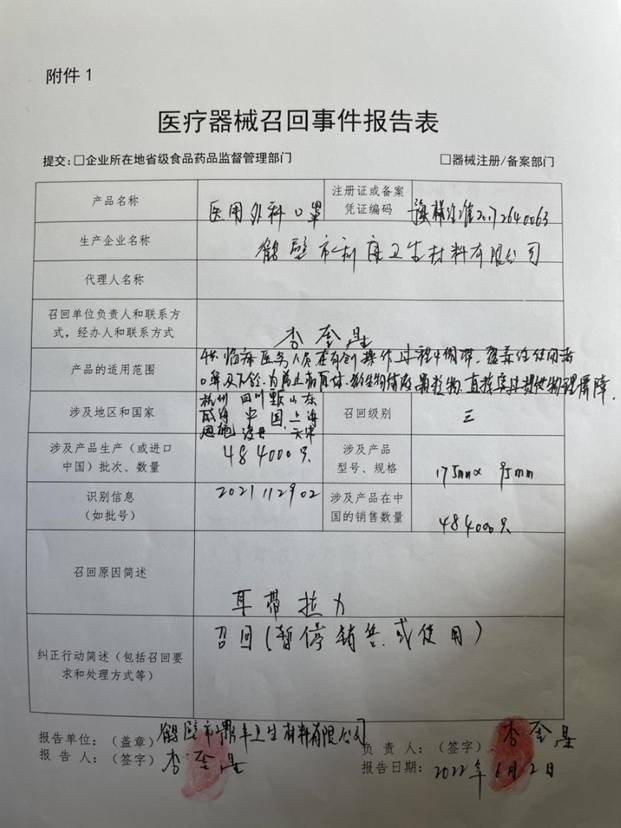 附件 1
医疗器械召回事件报告表
提交：□企业所在地省级食品药品监督管理部门 □器械注册/备案部门
产品名称 医用外科口罩 注册证或备案凭证编码 20172640063
生产企业名称 鹤壁市 卫生材料有限公司
代理人名称
召回单位负责人和联系方式，经办人和联系方式 李奎星
产品的适用范围 供临床医务人员在有创操作过程中佩带，覆盖住使用者
口鼻及下颌，为防止病原体、微生物 颗粒物 直接 提供物理屏障
涉及地区和国家 杭州 四川 山东
威海 中国 上海
恩施 天津
召回级别 三
涉及产品生产（或进口中国）批次、数量 484000只
涉及产品型号、规格 175mm× 95mm
识别信息（如批号） 2021112902
涉及产品在中国的销售数量 484000只
召回原因简述 耳带拉力
纠正行动简述（包括召回要求和处理方式等） 召回（暂停销售、或使用）
报告单位：（盖章） 鹤壁市 卫生材料有限公司
负责人：（签字） 李奎星
报告人：（签字） 李奎星
报告日期： 2022年6月2日